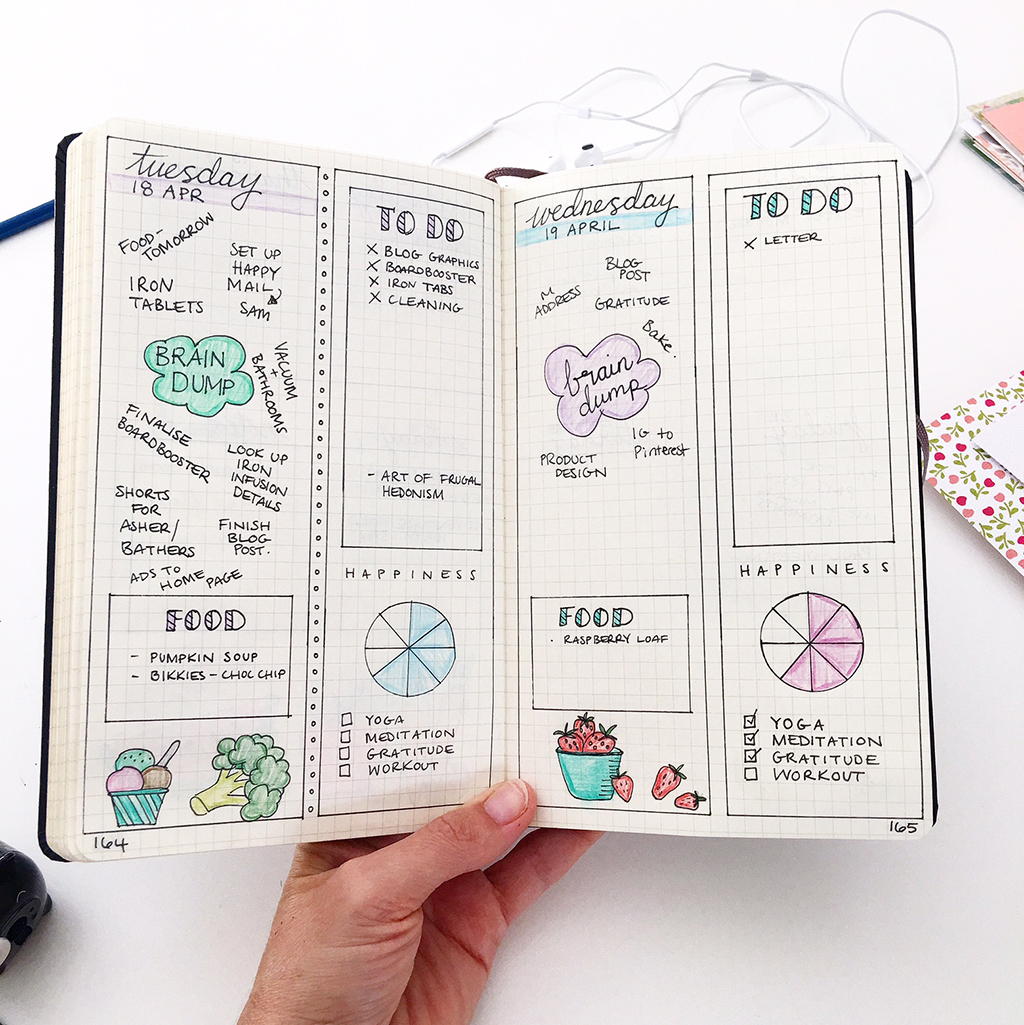 tuesday
18 APR
FOOD-
TOMORROW
SET UP
HAPPY
MAIL
SAM
IRON
TABLETS
BRAIN
DUMP
VACUUM
+
BATHROOMS
FINALISE
BOARDBOOSTER
LOOK UP
IRON
INFUSION
DETAILS
SHORTS
FOR
ASHER/
BATHERS
FINISH
BLOG
POST.
ADS TO
HOME PAGE
FOOD
- PUMPKIN SOUP
- BIKKIES - CHOC CHIP
164
TO DO
X BLOG GRAPHICS
X BOARDBOOSTER
X IRON TABS
X CLEANING
- ART OF FRUGAL
HEDONISM
HAPPINESS
YOGA
MEDITATION
GRATITUDE
WORKOUT
wednesday
19 APRIL
BLOG
POST
M
ADDRESS
GRATITUDE
Bake.
brain
dump
IG to
Pinterest
PRODUCT
DESIGN
FOOD
· RASPBERRY LOAF
TO DO
X LETTER
HAPPINESS
YOGA
MEDITATION
GRATITUDE
WORKOUT
165